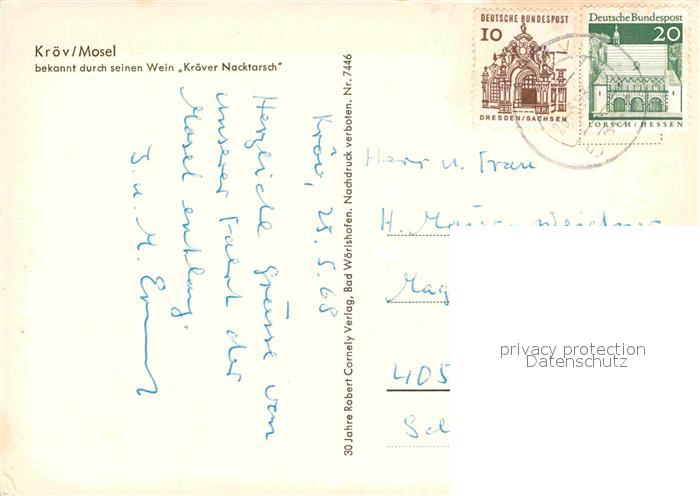 Kröv/Mosel
bekannt durch seinen Wein „Kröver Nacktarsch"
DEUTSCHE BUNDESPOST
10
DRESDEN/SACHSEN
Deutsche Bundespost
20
LORSCH/HESSEN
30 Jahre Robert Cornely Verlag, Bad Wörishofen. Nachdruck verboten. Nr. 7446
Kröv, 25.5.68
Herzliche Grüsse von
unserer Fahrt der
Mosel entlang.
Herr u. Frau
H.
Mag
405
privacy protection
Datenschutz